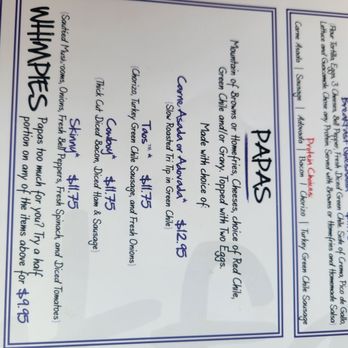 (Flour Tortilla, Eggs, 3 Cheeses, Bell Peppers, Fresh Diced Green Chile, Side of Crema, Pico de Gallo,
Lettuce and Guacamole. Chose any Protein. Served with Browns or Homefries and Homemade Salsa)
Protein Choices:
Carne Asada | Sausage | Adovada | Bacon | Chorizo | Turkey Green Chile Sausage
PAPAS
Mountain of Browns or Homefries, Cheeses, choice of Red Chile,
Green Chile and/or Gravy. Topped with Two Eggs.
Made with choice of
Carne Asada or Adovada* $12.95
(Slow Roasted Tri Tip in Green Chile)
Taos* $11.75
(Chorizo, Turkey Green Chile Sausage, and Fresh Onions)
Cowboy* $11.75
(Thick Cut Diced Bacon, Diced Ham & Sausage)
Skinny* $11.75
(Sautéed Mushrooms, Onions, Fresh Bell Peppers, Fresh Spinach, and Diced Tomatoes)
WHIMPIES Papas too much for you? Try a half
portion on any of the items above for $9.95